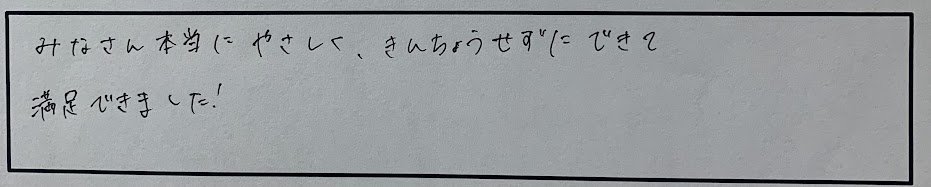 みなさん本当にやさしく、きんちょうせずにできて
満足できました!